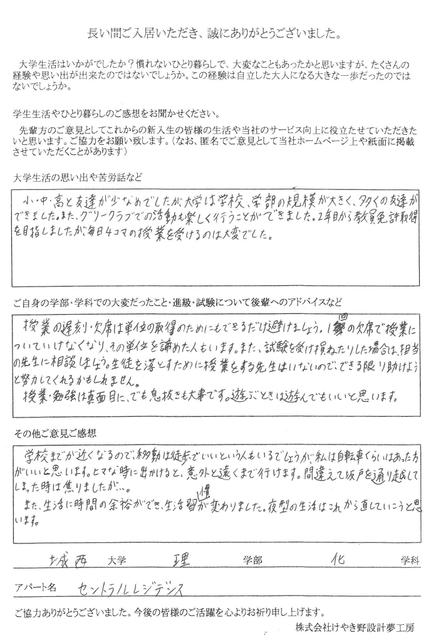 長い間ご入居いただき、誠にありがとうございました。
大学生活はいかがでしたか？慣れないひとり暮らしで、大変なこともあったかと思いますが、たくさんの
経験や思い出が出来たのではないでしょうか。この経験は自立した大人になる大きな一歩だったのでは
ないでしょうか。
学生生活やひとり暮らしのご感想をお聞かせください。
先輩方のご意見としてこれからの新入生の皆様の生活や当社のサービス向上に役立たせていただきた
いと思います。ご協力をお願い致します。（なお、匿名でご意見として当社ホームページ上や紙面に掲載
させていただくことがあります）
大学生活の思い出や苦労話など
小・中・高と友達が少なめでしたが、大学は学校、学部の規模が大きく、多くの友達が
できました。また、グリークラブでの活動も楽しく行うことができました。2年目から教員免許取得
を目指しましたが、毎日4コマの授業を受けるのは大変でした。
ご自身の学部・学科での大変だったこと・進級・試験について後輩へのアドバイスなど
授業の遅刻・欠席は単位の取得のためにもできるだけ避けましょう。1回の欠席で授業に
ついていけなくなり、その単位を諦めた人もいます。また、試験を受け損ねたりした場合は、担当
の先生に相談しましょう。生徒を落とすために授業をする先生はいないので、できる限り助けよう
と努力してくれるかもしれません。
授業・勉強は真面目に、でも息抜きも大事です。遊ぶときは遊んでもいいと思います。
その他ご意見ご感想
学校までが近くなるので、移動は徒歩でいいという人もいるでしょうが、私は自転車くらいはあった方
がいいと思います。ヒマな時に出かけると、意外と遠くまで行けます。間違えて坂戸を通り越して
しまった時は焦りましたが…。
また、生活に時間の余裕ができ、生活習慣が変わりました。夜型の生活はこれから直していこうと思
います。
城西 大学 理 学部 化 学科
アパート名 セントラルレジデンス
ご協力ありがとうございました。今後の皆様のご活躍を心よりお祈り申し上げます。
株式会社けやき野設計夢工房